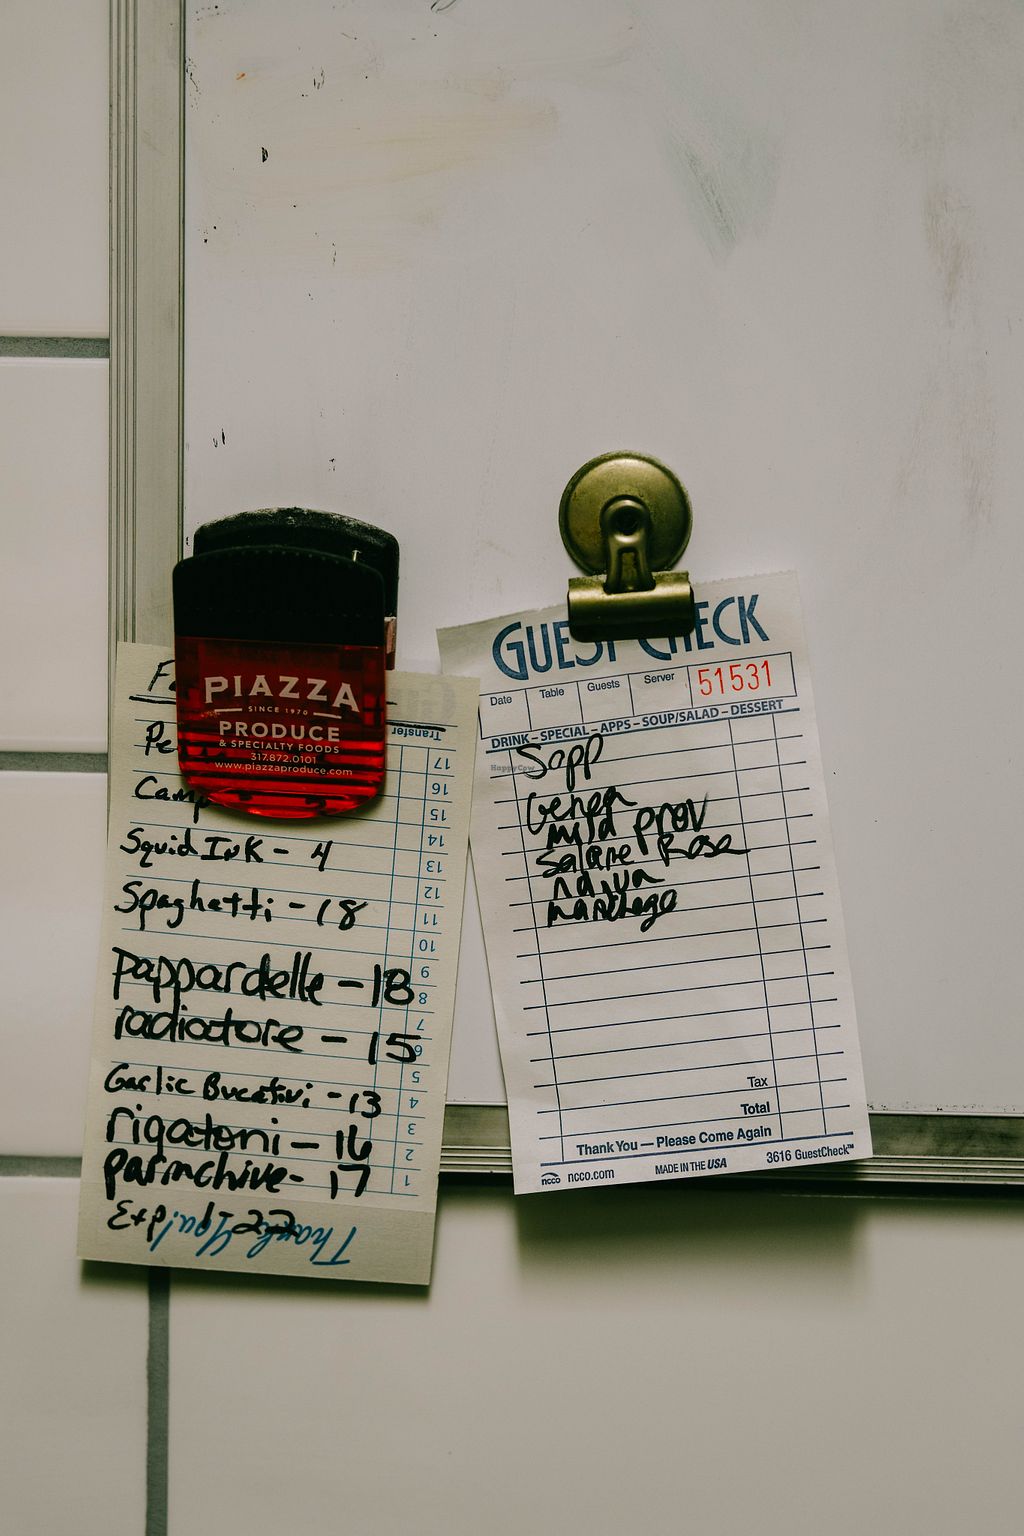 PIAZZA
SINCE 1970
PRODUCE
& SPECIALTY FOODS
317.872.0101
www.piazzaproduce.com
Transfer
Squid Ink - 4
Spaghetti - 18
pappardelle - 18
radiatore - 15
Garlic Bucativi - 13
rigatoni - 16
parmchive - 17
17
16
15
14
13
12
11
10
9
8
7
6
5
4
3
2
1
Thank You!
GUEST CHECK
Date Table Guests Server 51531
DRINK – SPECIAL – APPS – SOUP/SALAD – DESSERT
HappyCow
Sopp
mild prov
Salame Rosa
nduja
manchego
Tax
Total
Thank You — Please Come Again
ncco ncco.com MADE IN THE USA 3616 GuestCheck™